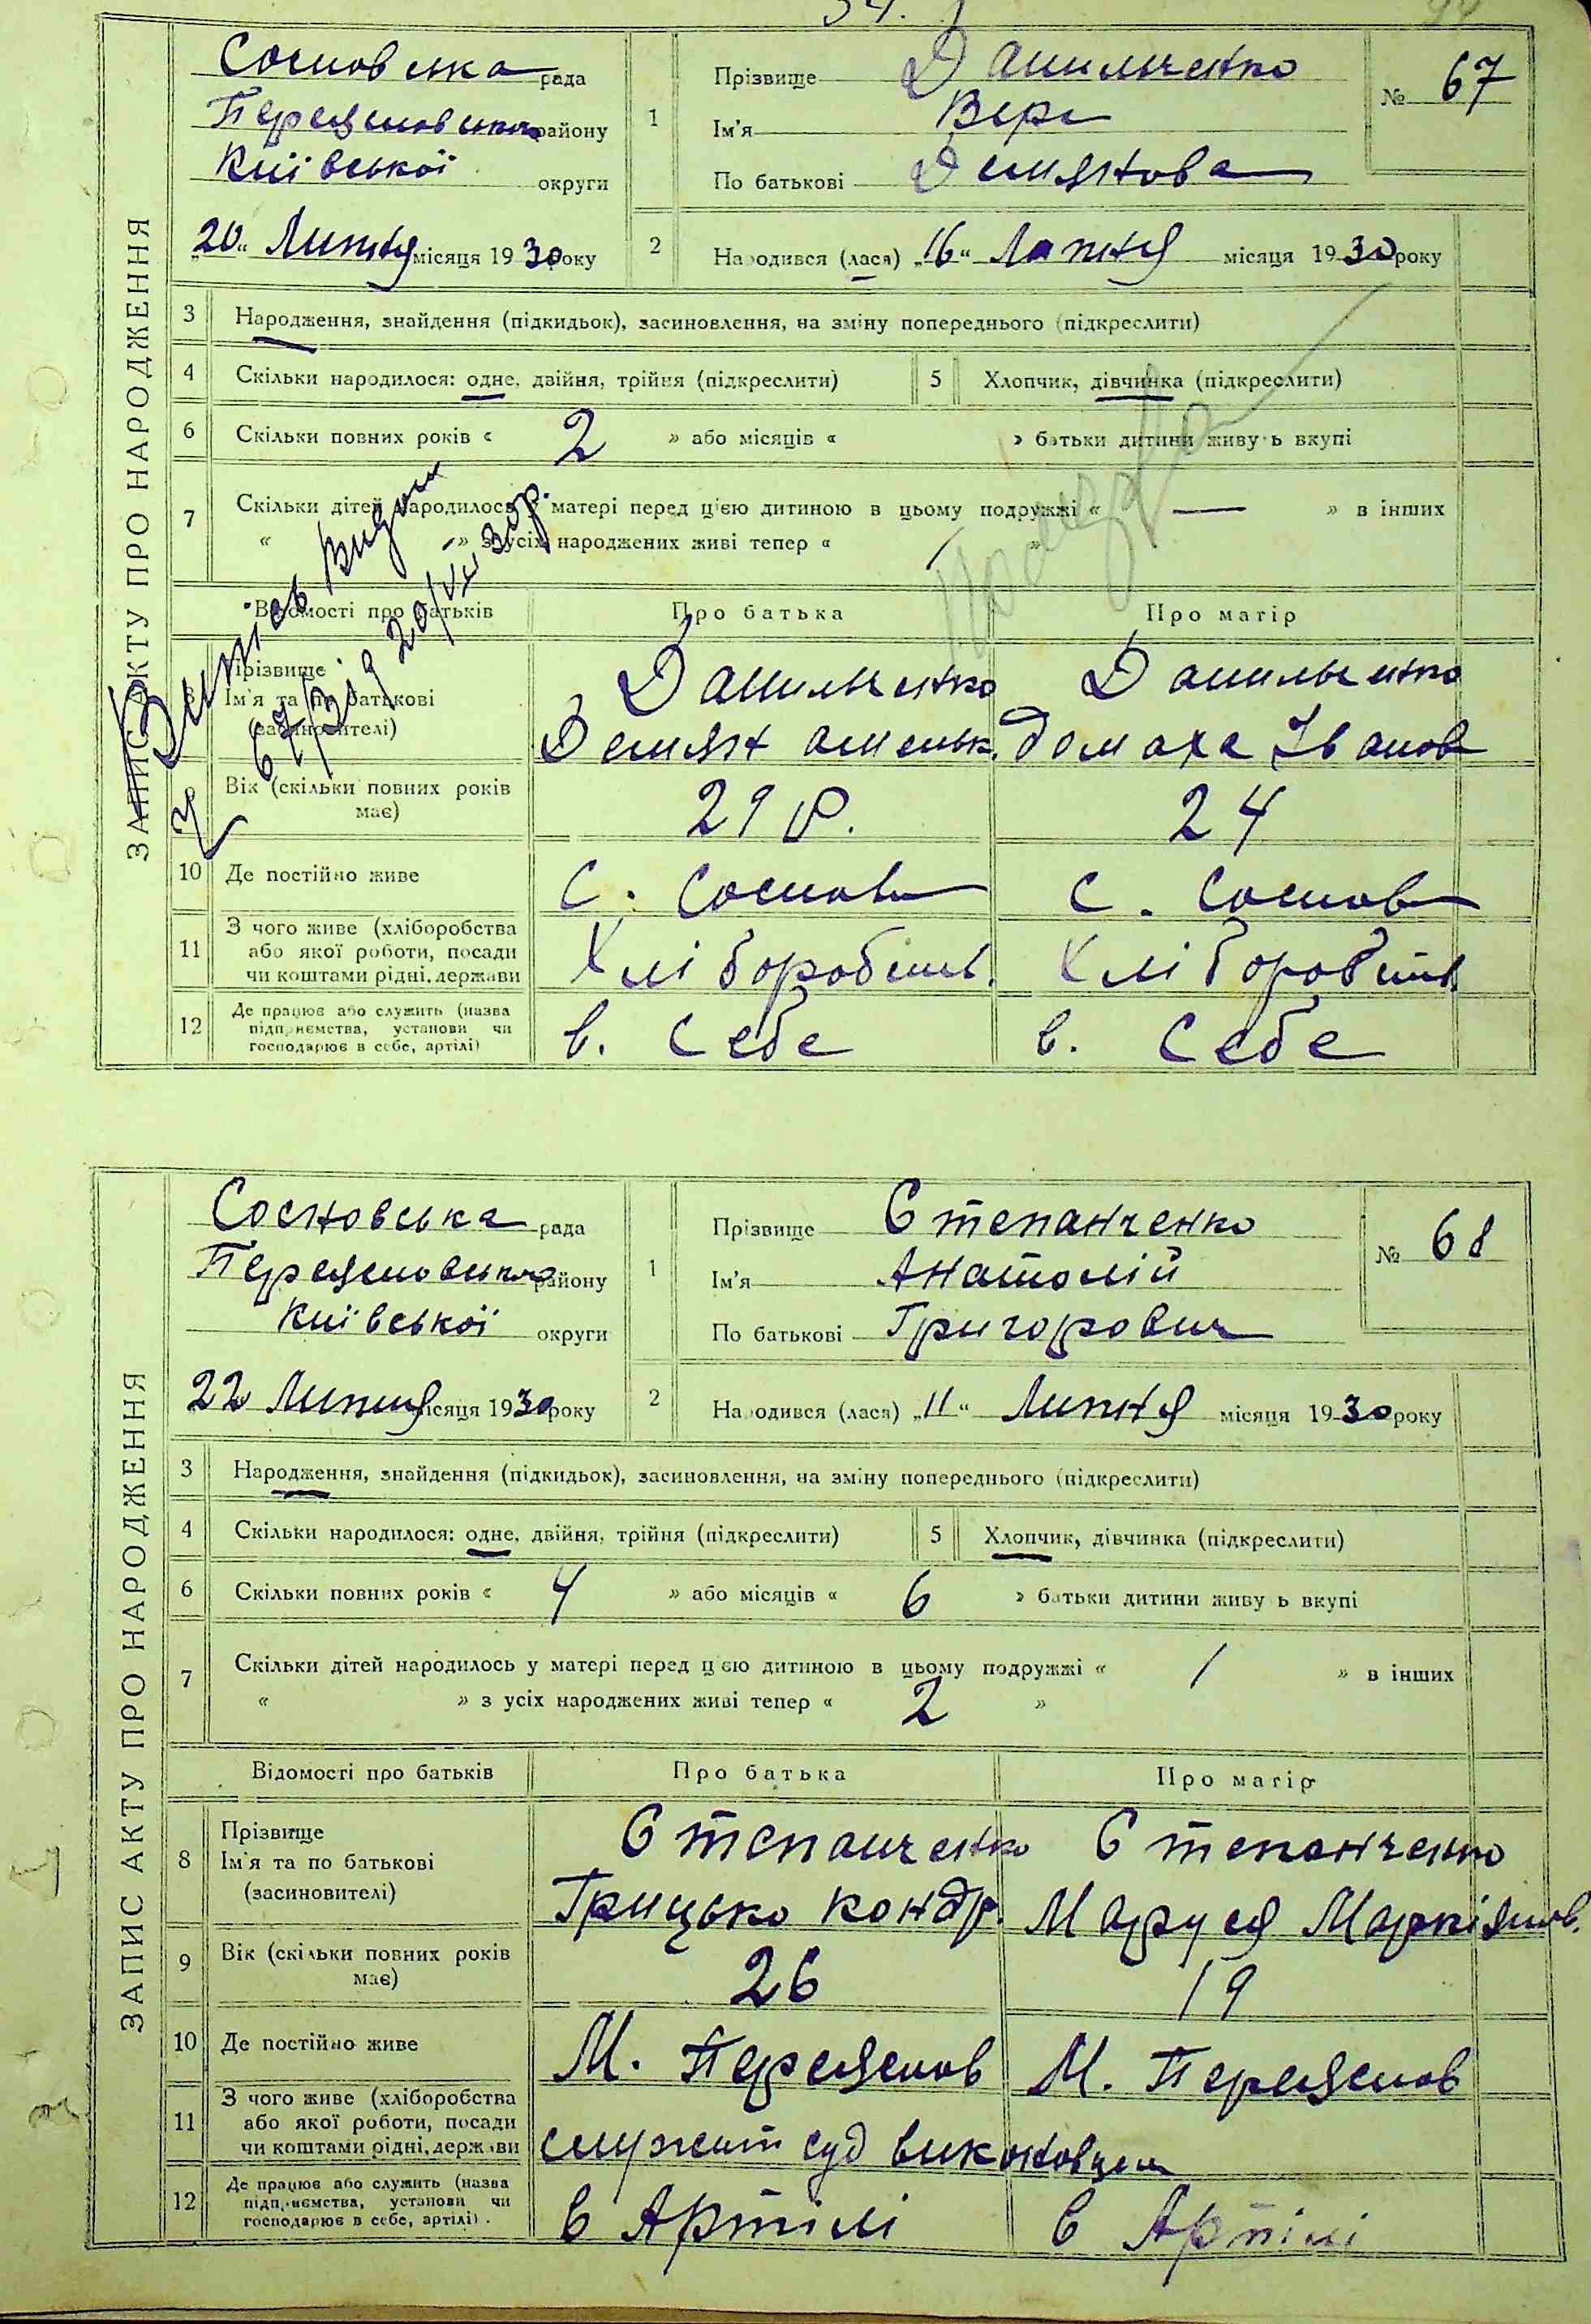 34.
ЗАПИС АКТУ ПРО НАРОДЖЕННЯ
Сосновська рада
Переяславського району
Київської округи
„20“ Липня місяця 1930 року
1
Прізвище Данильченко
Ім'я Вера
По батькові Демянова
№ 67
2
Народився (лася) „16“ Липня місяця 1930 року
3 Народження, знайдення (підкидьок), засиновлення, на зміну попереднього (підкреслити)
4 Скільки народилося: одне, двійня, трійня (підкреслити)
5 Хлопчик, дівчинка (підкреслити)
6 Скільки повних років « 2 » або місяців « » батьки дитини живуть вкупі
7 Скільки дітей народилось у матері перед цією дитиною в цьому подружжі « — » в інших
« » з усіх народжених живі тепер « / »
Витяг видан
67/31а 20/VII 30р.
Відомості про батьків Про батька Про матір
8 Прізвище Данильченко Данильченко
Ім'я та по батькові Демян Домаха Іванов
(засиновителі)
9 Вік (скільки повних років має) 29 р. 24
10 Де постійно живе с. Соснов с. Соснов
11 З чого живе (хліборобства
або якої роботи, посади
чи коштами рідні, держави Хліборобств. Хліборобств.
12 Де працює або служить (назва
підприємства, установи чи
господарює в себе, артілі) в. Себе в. Себе
ЗАПИС АКТУ ПРО НАРОДЖЕННЯ
Сосновська рада
Переяславського району
Київської округи
22 Липня місяця 1930 року
1
Прізвище Степанченко
Ім'я Анатолій
По батькові Григорович
№ 68
2
Народився (лася) „11“ Липня місяця 1930 року
3 Народження, знайдення (підкидьок), засиновлення, на зміну попереднього (підкреслити)
4 Скільки народилося: одне, двійня, трійня (підкреслити)
5 Хлопчик, дівчинка (підкреслити)
6 Скільки повних років « 4 » або місяців « 6 » батьки дитини живуть вкупі
7 Скільки дітей народилось у матері перед цією дитиною в цьому подружжі « 1 » в інших
« » з усіх народжених живі тепер « 2 »
Відомості про батьків Про батька Про матір
8 Прізвище Степанченко Степанченко
Ім'я та по батькові Грицько Кондр. Маруся Маркіянов.
(засиновителі)
9 Вік (скільки повних років має) 26 19
10 Де постійно живе М. Переяслов М. Переяслов
11 З чого живе (хліборобства
або якої роботи, посади
чи коштами рідні, держави служит суд виконовцем
12 Де працює або служить (назва
підприємства, установи чи
господарює в себе, артілі). в Артілі в Артілі